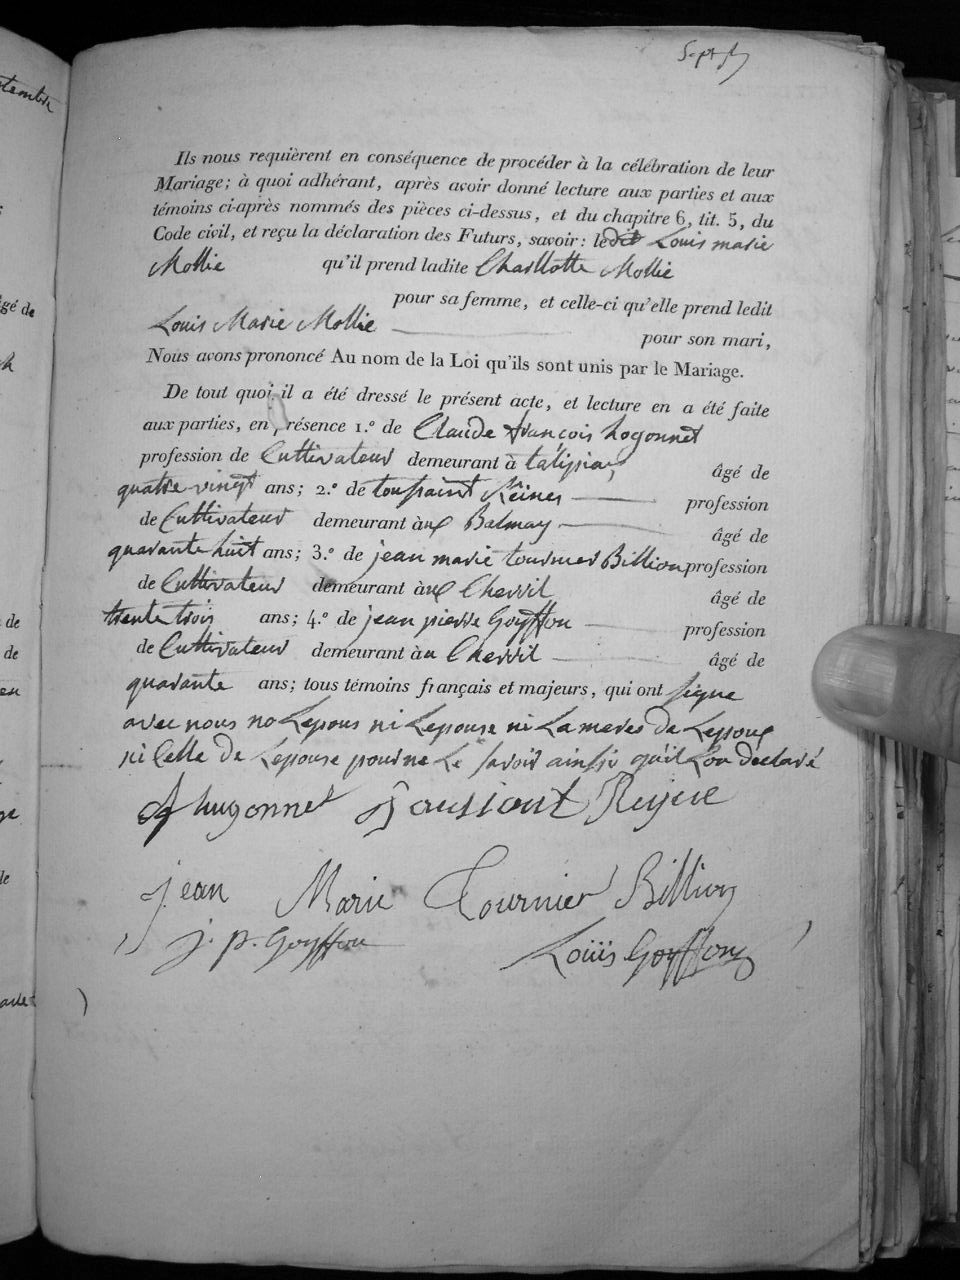 Sept
Ils nous requièrent en conséquence de procéder à la célébration de leur
Mariage; à quoi adhérant, après avoir donné lecture aux parties et aux
témoins ci-après nommés des pièces ci-dessus, et du chapitre 6, tit. 5, du
Code civil, et reçu la déclaration des Futurs, savoir: ledit Louis marie
Mollie qu'il prend ladite Charllotte Mollie
pour sa femme, et celle-ci qu'elle prend ledit
Louis Marie Mollie pour son mari,
Nous avons prononcé Au nom de la Loi qu'ils sont unis par le Mariage.
De tout quoi il a été dressé le présent acte, et lecture en a été faite
aux parties, en présence 1.º de Claude françois hogonnet
profession de Cultivateur demeurant à âgé de
quatre vingt ans; 2.º de toussaint Reines profession
de Cultivateur demeurant aux Balmay âgé de
quarante huit ans; 3.º de jean marie tournier Billion profession
de Cultivateur demeurant au Chevril âgé de
trente trois ans; 4.º de jean pierre Goyffon profession
de Cultivateur demeurant àu Chevril âgé de
quarante ans; tous témoins français et majeurs, qui ont signe
avec nous no Lepous ni Lepouse ni La mere de Lepoux
ni Celle de Lepouse pour ne Le savoir ainssi qu'il Lon déclaré
hugonnet Toussaint Reyne
jean Marie Tournier Billion
j. p. Goyffon Louis Goyffon